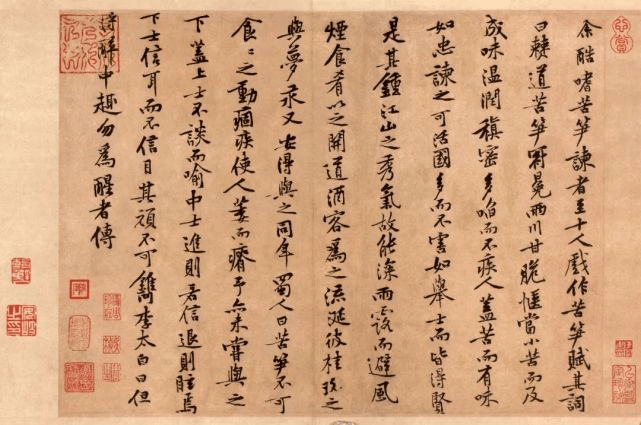 余酷嗜苦筍諫者至十人戲作苦筍賦其詞
曰僰道苦筍冠冕兩川甘脆愜當小苦而及
成味溫潤稹密多啗而不疾人蓋苦而有味
如忠諫之可活國多而不害如舉士而皆得賢
是其鍾江山之秀氣故能深雨露而避風
煙食肴以之開道酒客爲之流涎彼桂玫之
與夢汞又安得與之同年蜀人曰苦筍不可
食〻之動痼疾使人萎而瘠予亦未嘗與之
下蓋上士不談而喻中士進則若信退則眩焉
下士信耳而不信目其頑不可鐫李太白曰但
得醉中趣勿爲醒者傳